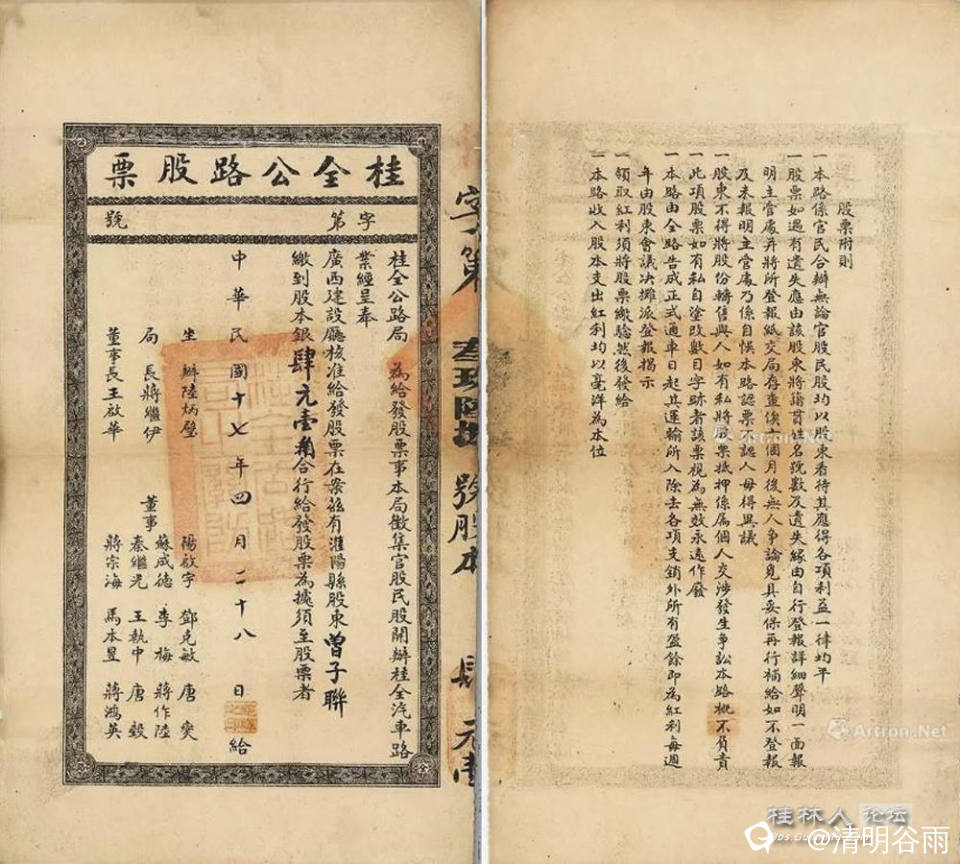 桂全公路股票
字第　　號
桂全公路局　為給發股票事本局徵集官股民股開辦桂全汽車路
業經呈奉
廣西建設廳核准給發股票在案茲有灌陽縣股東曾子聯
繳到股本銀肆元壹角合行給發股票為據須至股票者
中華民國十七年四月二十八日給
坐辦陸炳璧
局長蔣繼伊
董事長王啟華
董事
陽啟宇　鄧克敏　唐奭
蘇成德　李梅　蔣作陸
秦繼光　王執中　唐毅
蔣宗海　馬本昱　蔣鴻英
字第　號股本　肆元壹
股票附則
一本路係官民合辦無論官股民股均以股東看待其應得各項利益一律均平
一股票如遇有遺失應由該股東將籍貫姓名號數及遺失緣由自行登報詳細聲明一面報
明主管處并將所登報紙交局存查俟六個月後無人爭論覓具妥保再行補給如不登報
及未報明主管處乃係自悞本路認票不認人毋得異議
一股東不得將股份轉售與人如有私將股票抵押係屬個人交涉發生爭訟本路概不負責
一此項股票如有私自塗改數目字跡者該票視為無效永遠作廢
一本路由全路告成正式通車日起其運輸所入除去各項支銷外所有盈餘即為紅利每週
年由股東會議決攤派登報揭示
一領取紅利須將股票繳驗然後發給
一本路收入股本支出紅利均以毫洋為本位
Artron.Net
桂林人论坛
@清明谷雨